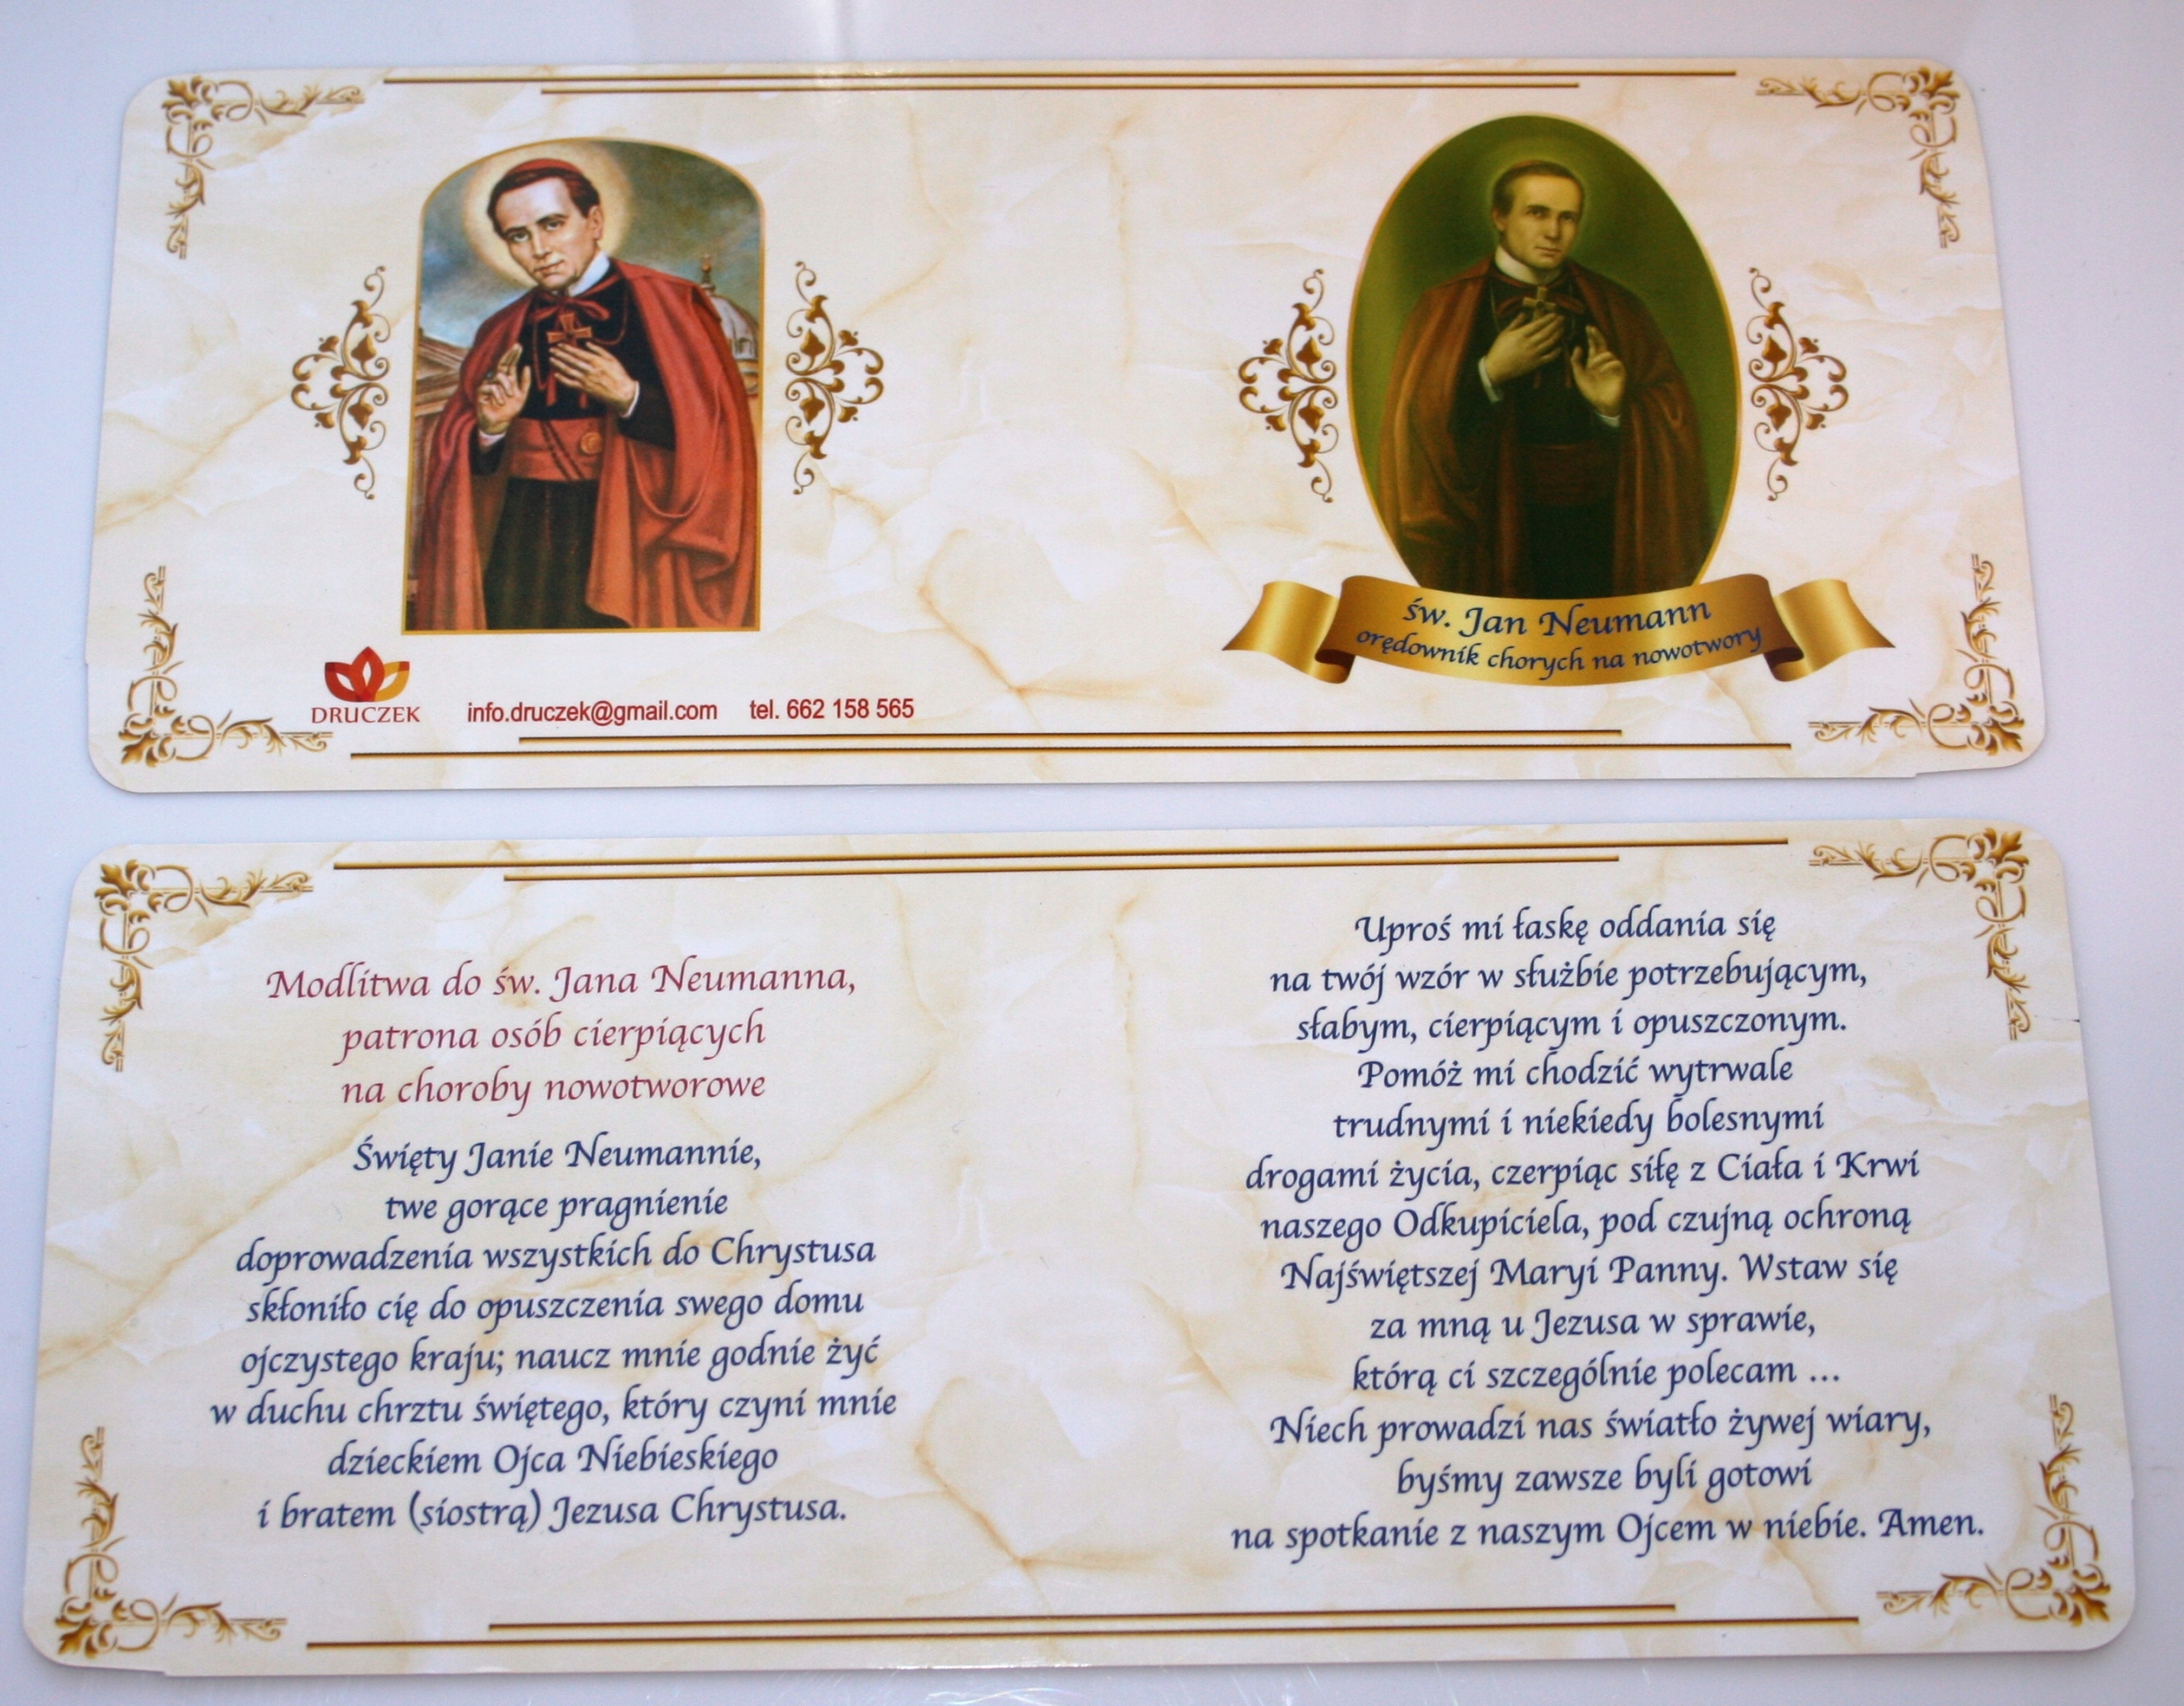 św. Jan Neumann
orędownik chorych na nowotwory
DRUCZEK
info.druczek@gmail.com tel. 662 158 565
Modlitwa do św. Jana Neumanna,
patrona osób cierpiących
na choroby nowotworowe
Święty Janie Neumannie,
twe gorące pragnienie
doprowadzenia wszystkich do Chrystusa
skłoniło cię do opuszczenia swego domu
ojczystego kraju; naucz mnie godnie żyć
w duchu chrztu świętego, który czyni mnie
dzieckiem Ojca Niebieskiego
i bratem (siostrą) Jezusa Chrystusa.
Uproś mi łaskę oddania się
na twój wzór w służbie potrzebującym,
słabym, cierpiącym i opuszczonym.
Pomóż mi chodzić wytrwale
trudnymi i niekiedy bolesnymi
drogami życia, czerpiąc siłę z Ciała i Krwi
naszego Odkupiciela, pod czujną ochroną
Najświętszej Maryi Panny. Wstaw się
za mną u Jezusa w sprawie,
którą ci szczególnie polecam ...
Niech prowadzi nas światło żywej wiary,
byśmy zawsze byli gotowi
na spotkanie z naszym Ojcem w niebie. Amen.